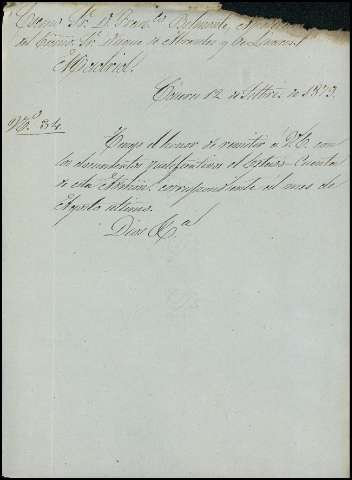 Excmo. Sr. D. Fran.co Belmonte, A
del Excmo. Sr. Duque de Abrantes y de Linares
Madrid.
Cáceres 12 de Setbre. de 1873.
N.º 34
Tengo el honor de remitir a V.E. con
los documentos justificativos el Estracto Cuenta
de esta Admon. correspondiente al mes de
Agosto último.
Dios &.a